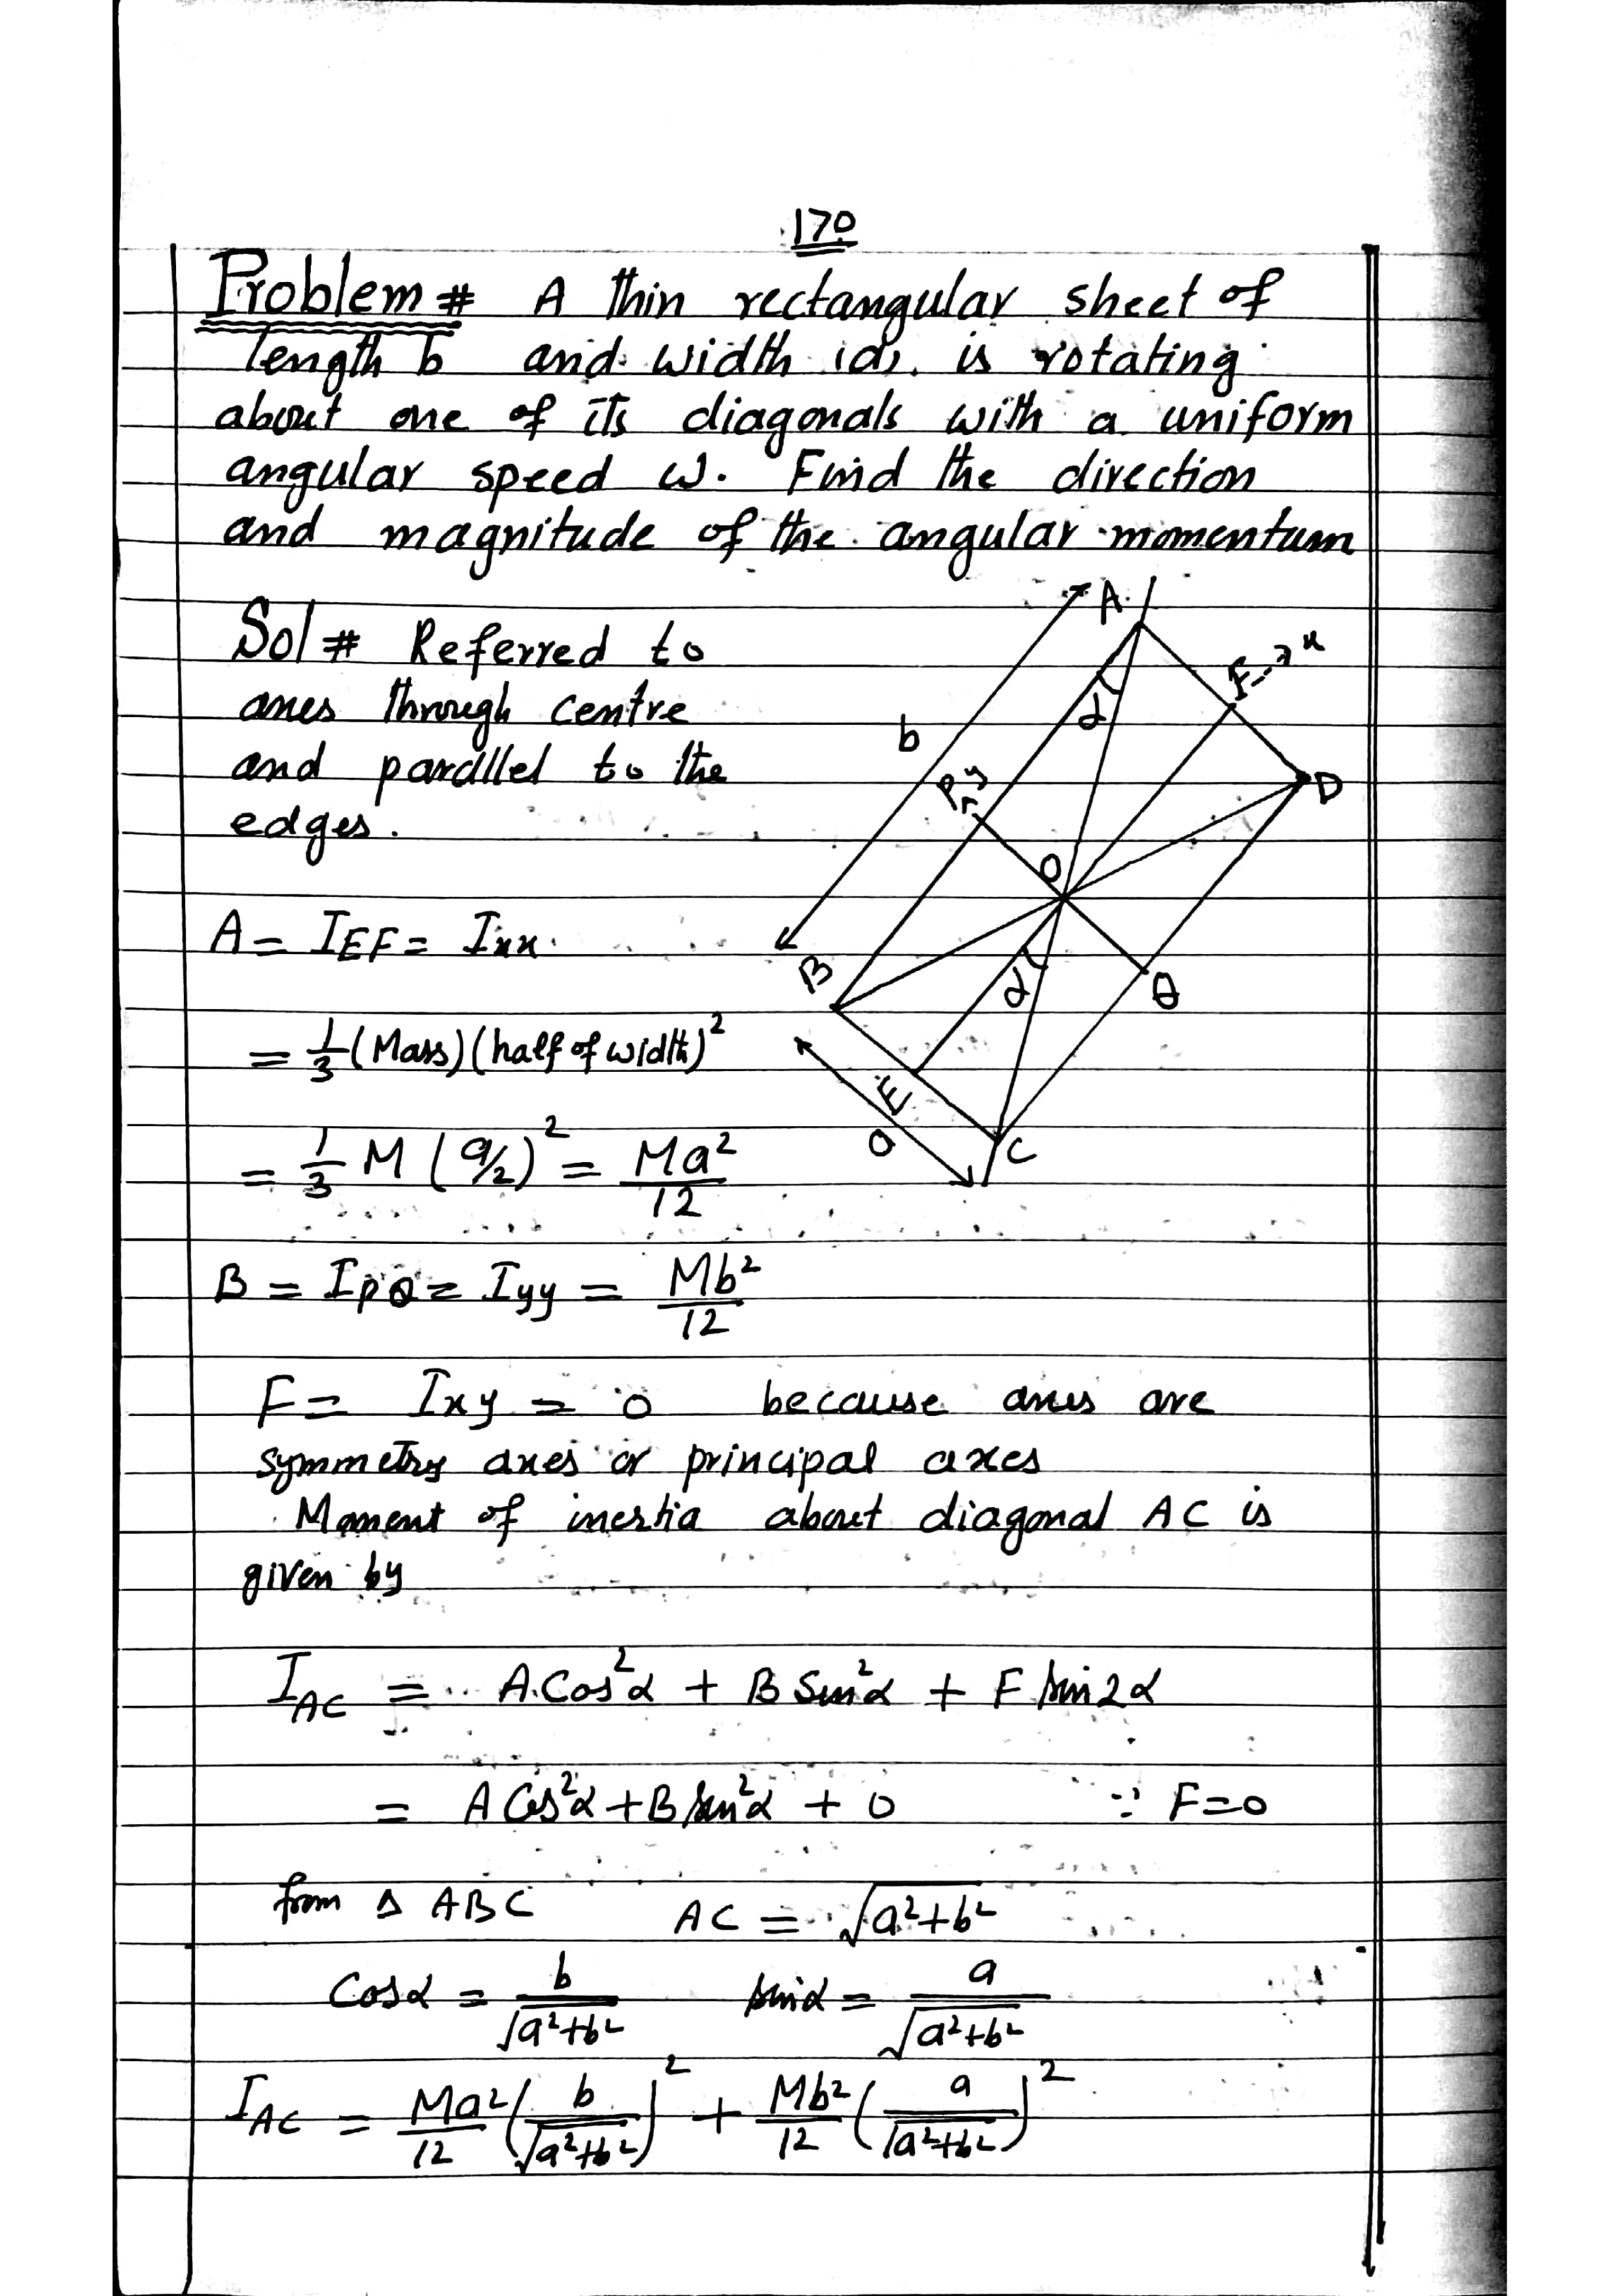 170
Problem # A thin rectangular sheet of
length b and width (a), is rotating
about one of its diagonals with a uniform
angular speed ω. Find the direction
and magnitude of the angular momentum
Sol # Referred to
axes through centre
and parallel to the
edges.
A = I_EF = Ixx
= 1/3 (Mass) (half of width)²
= 1/3 M (a/2)² = Ma²/12
B = I_PQ = Iyy = Mb²/12
F = Ixy = 0 because axes are
symmetry axes or principal axes
Moment of inertia about diagonal AC is
given by
I_AC = A Cos²α + B Sin²α + F sin2α
= A Cos²α + B sin²α + 0 ∵ F=0
from Δ ABC AC = √(a²+b²)
Cosα = b/√(a²+b²) sinα = a/√(a²+b²)
I_AC = Ma²/12 (b/√(a²+b²))² + Mb²/12 (a/√(a²+b²))²
A
F → x
α
b
P y
D
O
B
α
Q
E
a
C